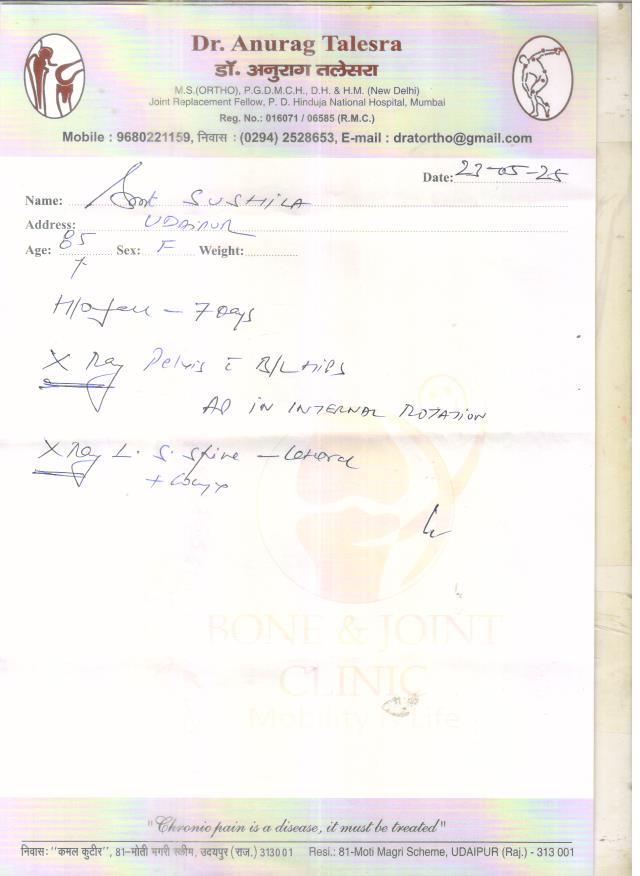 Dr. Anurag Talesra
डॉ. अनुराग तलेसरा
M.S.(ORTHO), P.G.D.M.C.H., D.H. & H.M. (New Delhi)
Joint Replacement Fellow, P. D. Hinduja National Hospital, Mumbai
Reg. No.: 016071 / 06585 (R.M.C.)
Mobile : 9680221159, निवास : (0294) 2528653, E-mail : dratortho@gmail.com
Date: 23-05-25
Name: Smt SUSHILA
Address: UDAIPUR
Age: 85 Sex: F Weight:
H/o fall - 7 Days
X Ray Pelvis c B/L HIPS
AP IN INTERNAL ROTATION
X Ray L. S. Spine - Lateral
+ Coccyx
BONE & JOINT
CLINIC
Mobility is Life
"Chronic pain is a disease, it must be treated"
निवास: "कमल कुटीर", 81-मोती मगरी स्कीम, उदयपुर (राज.) 313001 Resi.: 81-Moti Magri Scheme, UDAIPUR (Raj.) - 313 001